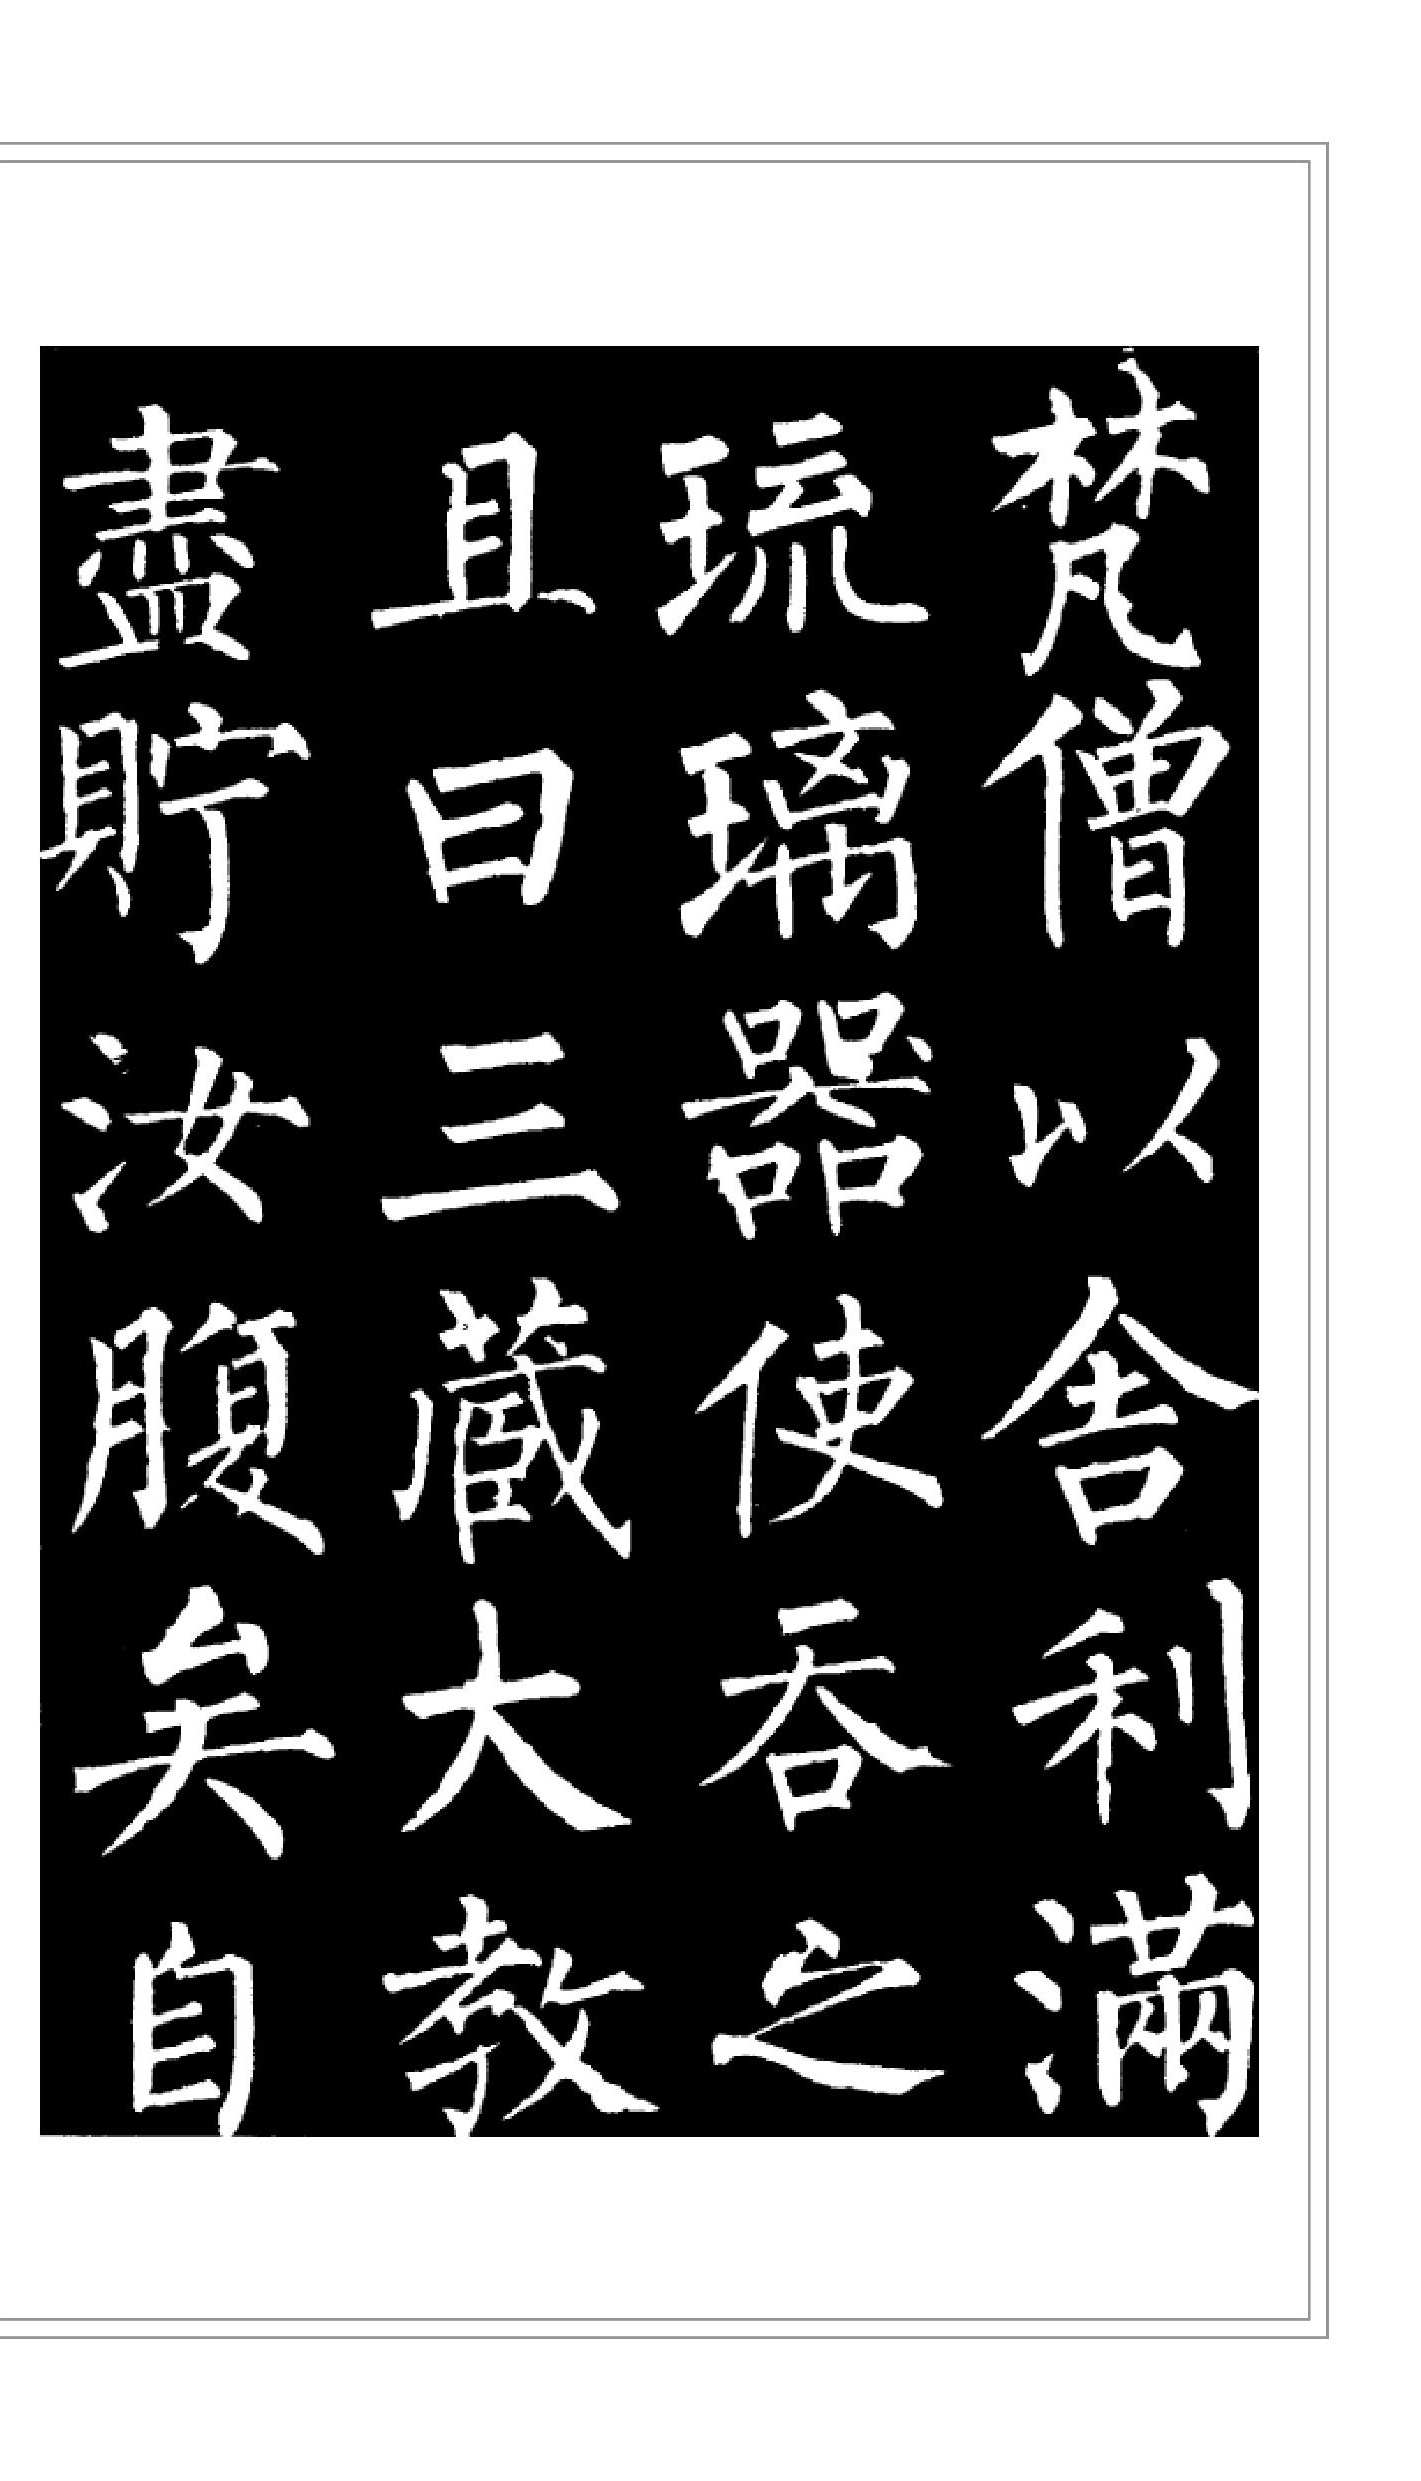 梵僧以舍利滿
琉璃器使吞之
且曰三藏大教
盡貯汝腹矣自